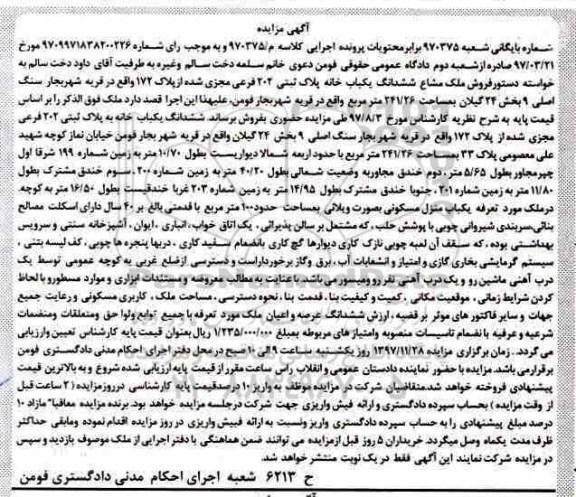 آگهی مزایده
شماره بایگانی شعبه ۹۷۰۳۷۵ برابر محتویات پرونده اجرایی کلاسه م/۹۷۰۳۷۵ و به موجب رای شماره ۹۷۰۹۹۷۱۸۳۸۲۰۰۲۲۶ مورخ
۹۷/۰۳/۲۱ صادره از شعبه دوم دادگاه عمومی حقوقی فومن دعوی خانم سلمه دخت سالم وغیره به طرفیت آقای داود دخت سالم به
خواسته دستور فروش ملک مشاع ششدانگ یکباب خانه پلاک ثبتی ۲۰۲ فرعی مجزی شده از پلاک ۱۷۲ واقع در قریه شهر بیجار سنگ
اصلی ۹ بخش ۲۴ گیلان بمساحت ۲۴۱/۲۶ متر مربع واقع در قریه شهر بیجار فومن، علیهذا این اجرا قصد دارد ملک فوق الذکر را بر اساس
قیمت پایه به شرح نظریه کارشناس مورخ ۹۷/۸/۳ طی مزایده حضوری بفروش برساند. ششدانگ یکباب خانه به پلاک ثبتی ۲۰۲ فرعی
مجزی شده از پلاک ۱۷۲ واقع در قریه شهر بیجار سنگ اصلی ۹ بخش ۲۴ گیلان واقع در قریه شهر بیجار فومن خیابان نماز کوچه شهید
علی معصومی پلاک ۳۳ بمساحت ۲۴۱/۲۶ متر مربع با حدود اربعه شمالا دیواریست بطول ۱۰/۷۰ متر به زمین شماره ۱۹۹ شرقا اول
چپر مجاور بطول ۵/۶۵ متر، دوم خندق مجاور به وضعیت شمالی بطول ۴۰/۲۰ متر به زمین شماره ۲۰۰، سوم خندق مشترک بطول
۱۱/۸۰ متر به زمین شماره ۲۰۱، جنوبا خندق مشترک بطول ۱۴/۹۵ متر به زمین شماره ۲۰۳ غربا خندقیست بطول ۱۶/۵۰ متر به کوچه.
در ملک مورد تعرفه یکباب منزل مسکونی بصورت ویلائی بمساحت حدود ۱۰۰ متر مربع با قدمتی بالغ بر ۴۰ سال دارای اسکلت مصالح
بنائی، سربندی شیروانی چوبی با پوشش حلب، که مشتمل بر سالن پذیرائی، یک اتاق خواب، انباری، ایوان، آشپزخانه سنتی و سرویس
بهداشتی بوده، که سقف آن لمبه چوبی نازک کاری دیوارها گچ کاری بانضمام سفید کاری، دربها پنجره ها چوبی، کف لیسه بتنی،
سیستم گرمایشی بخاری گازی و امتیاز و انشعابات آب، برق و گاز برخوردار است و دسترسی از ضلع غربی به کوچه عمومی توسط یک
درب آهنی ماشین رو و یک درب آهنی نفر رو ومیسور می باشد. با عنایت به مطالب معروضه و مستندات ابرازی و موارد مسطور و با لحاظ
کردن شرایط زمانی، موقعیت مکانی، کمیت و کیفیت بنا، قدمت بنا، نحوه دسترسی، مساحت ملک، کاربری مسکونی و رعایت جمیع
جهات و سایر فاکتور های موثر بر قضیه، ارزش ششدانگ عرصه و اعیان ملک مورد تعرفه با جمیع توابع و لواحق و متعلقات و منضمات
شرعیه و عرفیه با نضمام تاسیسات منصوبه و امتیاز های مربوطه بمبلغ ۱/۲۳۵/۰۰۰/۰۰۰ ریال بعنوان قیمت پایه کارشناس تعیین وارزیابی
می گردد. زمان برگزاری مزایده ۱۳۹۷/۱۱/۲۸ روز یکشنبه بساعت ۹ الی ۱۰ صبح در محل دفتر اجرای احکام مدنی دادگستری فومن
برقرار می باشد. مزایده با حضور نماینده دادستان عمومی و انقلاب راس ساعت مقرر از قیمت پایه ارزیابی شده شروع و به بالاترین قیمت
پیشنهادی فروخته خواهد شد. متقاضیان شرکت در مزایده موظف به واریز ۱۰ درصد قیمت پایه کارشناسی در روز مزایده (۲ ساعت قبل
از وقت مزایده) بحساب سپرده دادگستری و ارائه فیش واریزی جهت شرکت در جلسه مزایده خواهد بود. برنده مزایده معاقبا" مازاد ۱۰
درصد مبلغ پیشنهادی را به حساب سپرده دادگستری واریز ونسبت به ارائه فیش واریزی در روز مزایده اقدام نموده ومابقی حداکثر
ظرف مدت یکماه وصل میگردد. خریداران ۵ روز قبل از مزایده می توانند ضمن هماهنگی با دفتر اجرایی از ملک موصوف بازدید و سپس
در مزایده شرکت نمایند این آگهی فقط در یک نوبت منتشر خواهد شد.
ح ۶۲۱۳ شعبه اجرای احکام مدنی دادگستری فومن